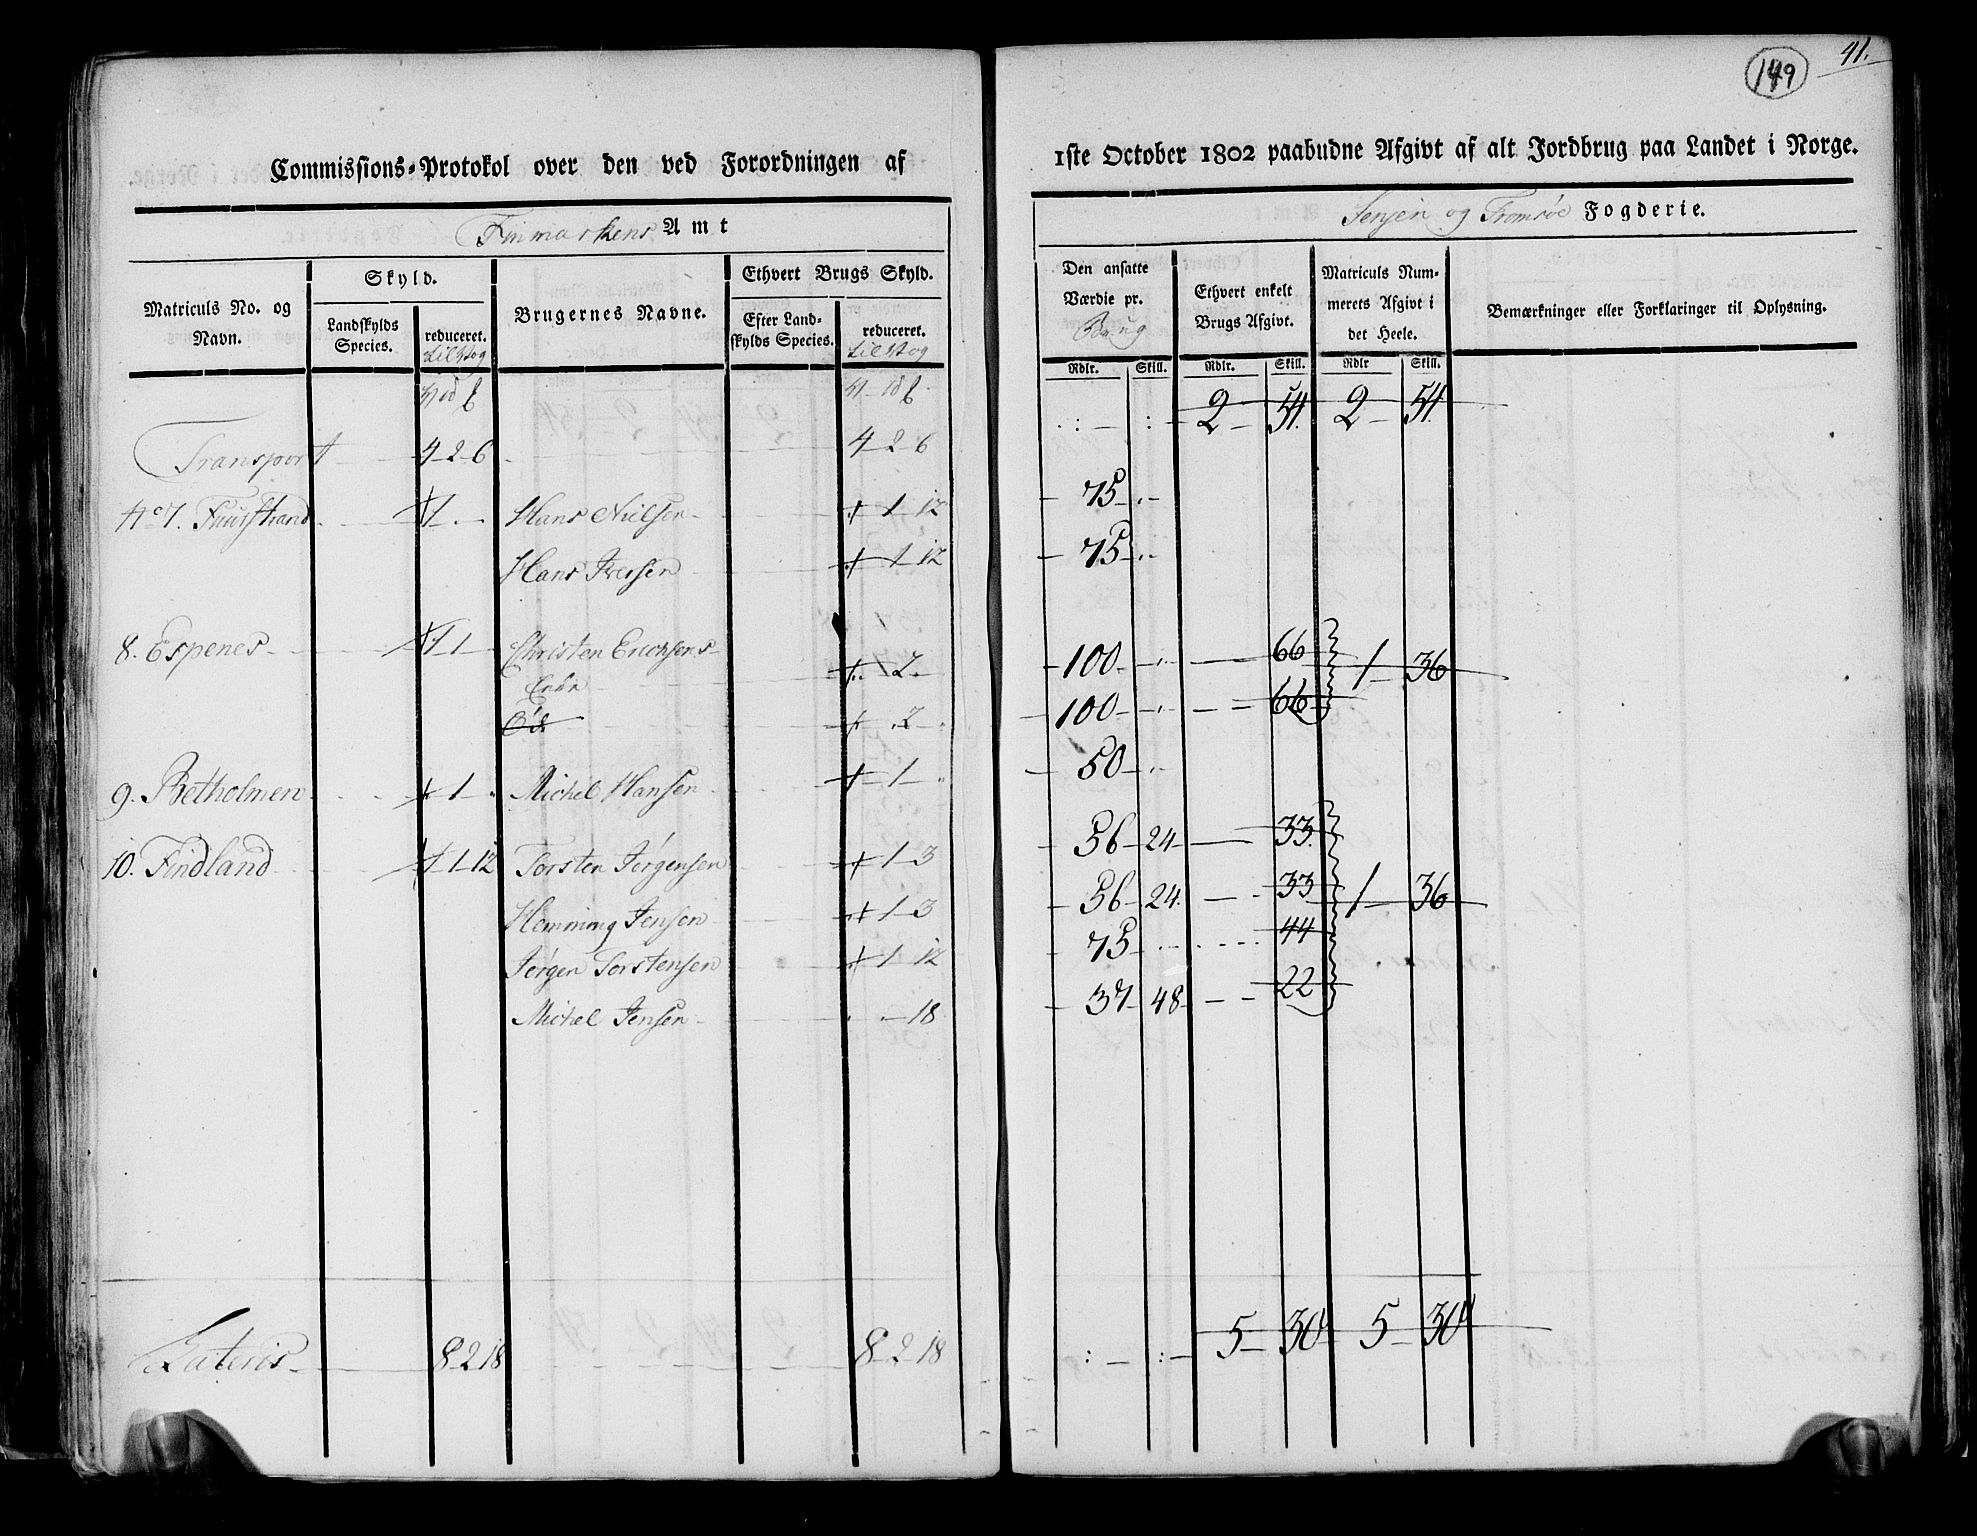 149
41.
Commissions-Protokol over den ved Forordningen af
1ste October 1802 paabudne Afgivt af alt Jordbrug paa Landet i Norge.
Finmarkens Amt
Senjen og Tromsøe Fogderie.
Matriculs No. og Navn.
Skyld.
Landskylds Species.
reduceret.
Brugernes Navne.
Ethvert Brugs Skyld.
Efter Landskylds Species.
reduceret.
Den ansatte Værdie pr. Brug
Ethvert enkelt Brugs Afgivt.
Matriculs Nummerets Afgivt i det Heele.
Bemærkninger eller Forklaringer til Oplysning.
Rdlr. Skill. Rdlr. Skill. Rdlr Skill.
Transport 4 - 2 - 6 4 - 2 - 6 2 - 54. 2 - 54.
No 7. Fuurstrand 1 - Hans Nielsen 1 - 12 75 -
Hans Iversen 1 - 12 75 -
8. Espenes 1 - 1 - Christen Erichsens Enke 2 - 100 - 66 1 - 36
Øde 2 - 100 - 66
9. Betholmen 1 - Michel Hansen 1 - 50 -
10. Findland 1 - 1 - 12 Torsten Jørgensen 1 - 3 56 - 24 33
Hemming Jensen 1 - 3 56 - 24 33 1 - 36
Jørgen Torstensen 1 - 12 75 - 44
Michel Jensen - 18 37 - 48 22
Lateris 8 - 2 - 18 8 - 2 - 18 5 - 30 5 - 30